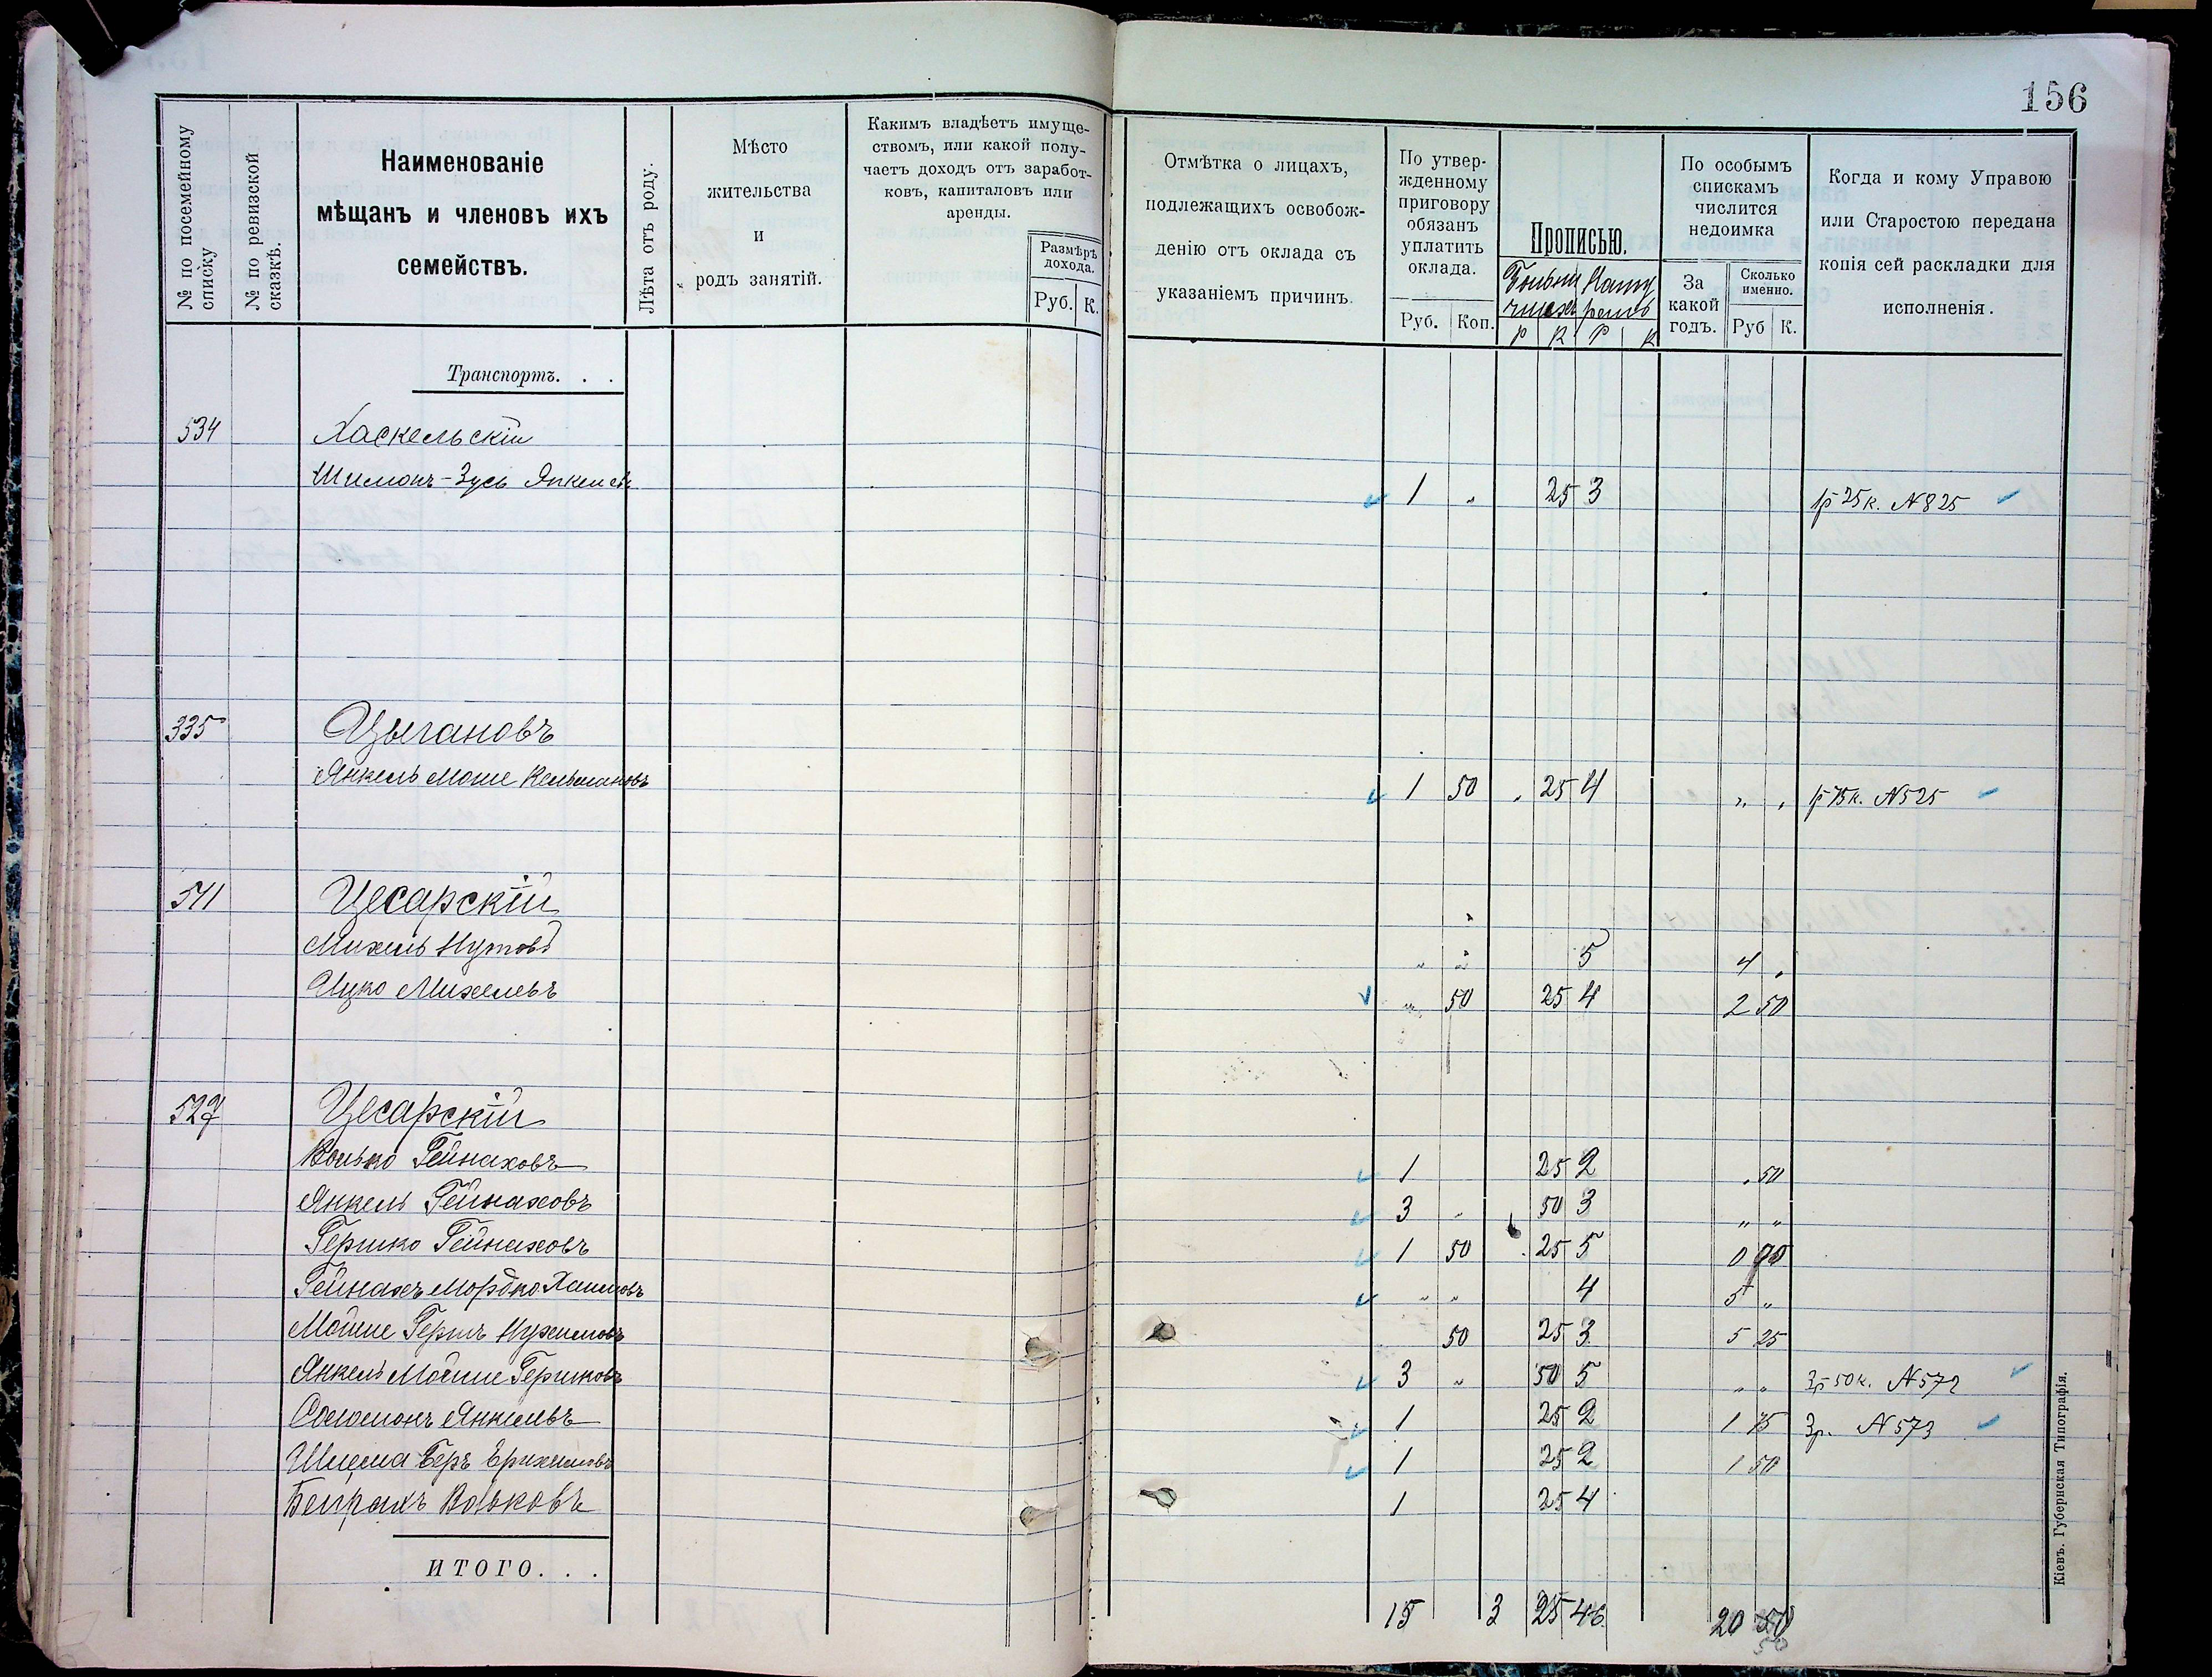 156
№ по посемейному списку
№ по ревизской сказкѣ.
Наименованіе
мѣщанъ и членовъ ихъ
семействъ.
Лѣта отъ роду.
Мѣсто
жительства
и
родъ занятій.
Какимъ владѣетъ имуще-
ствомъ, или какой полу-
чаетъ доходъ отъ заработ-
ковъ, капиталовъ или
аренды.
Размѣръ
дохода.
Руб. К.
Отмѣтка о лицахъ,
подлежащихъ освобож-
денію отъ оклада съ
указаніемъ причинъ.
По утвер-
жденному
приговору
обязанъ
уплатить
оклада.
Руб. Коп.
Прописью.
Р К Р К
По особымъ
спискамъ
числится
недоимка
За
какой
годъ.
Сколько
именно.
Руб К.
Когда и кому Управою
или Старостою передана
копія сей раскладки для
исполненія.
Транспортъ. . .
534 Хаскельскій
Шимонъ-Зусь Янкелев 1 „ 25 3 1р 25к. №825
335 Цыгановъ
Янкель Моше Кельмановъ 1 50 „ 25 4 „ „ 1р 75к. №525
511 Цесарскій
Михель Нутовъ „ „ 5 4 „
Ицко Михелевъ „ 50 25 4 2 50
527 Цесарскій
Волько Гейнаховъ 1 25 2 „ 50
Янкель Гейнаховъ 3 „ 50 3 „ „
Гершко Гейнаховъ 1 50 25 5 0
Гейнахъ Мордко Хаимовъ „ „ 4 5 „
Мойше Гершъ Нухимовъ 50 25 3 5 25
Янкель Мойше Гершковъ 3 „ 50 5 „ „ 3р 50к. №572
Соломонъ Янкелевъ 1 25 2 1 75 3р. №573
Шлема Беръ 1 25 2 1 50
Вольковъ 1 25 4
ИТОГО. . .
15 3 25 46. 20 50
50
Кіевъ. Губернская Типографія.